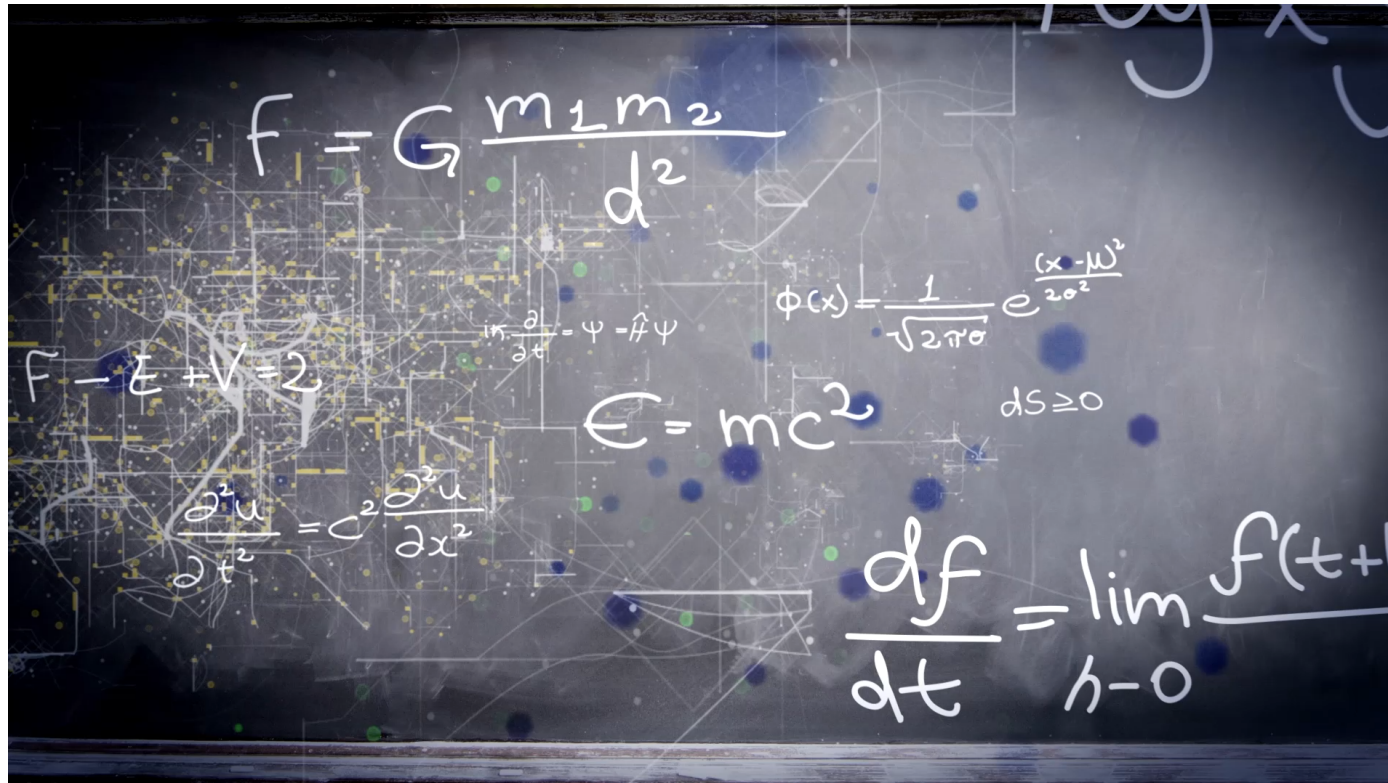 log x
F = G m1m2/d²
ϕ(x) = 1/√2πσ e^(x-μ)²/2σ²
iℏ ∂/∂t = Ψ = ĤΨ
F - E + V = 2
E = mc²
dS ≥ 0
∂²u/∂t² = c² ∂²u/∂x²
df/dt = lim h-0 f(t+